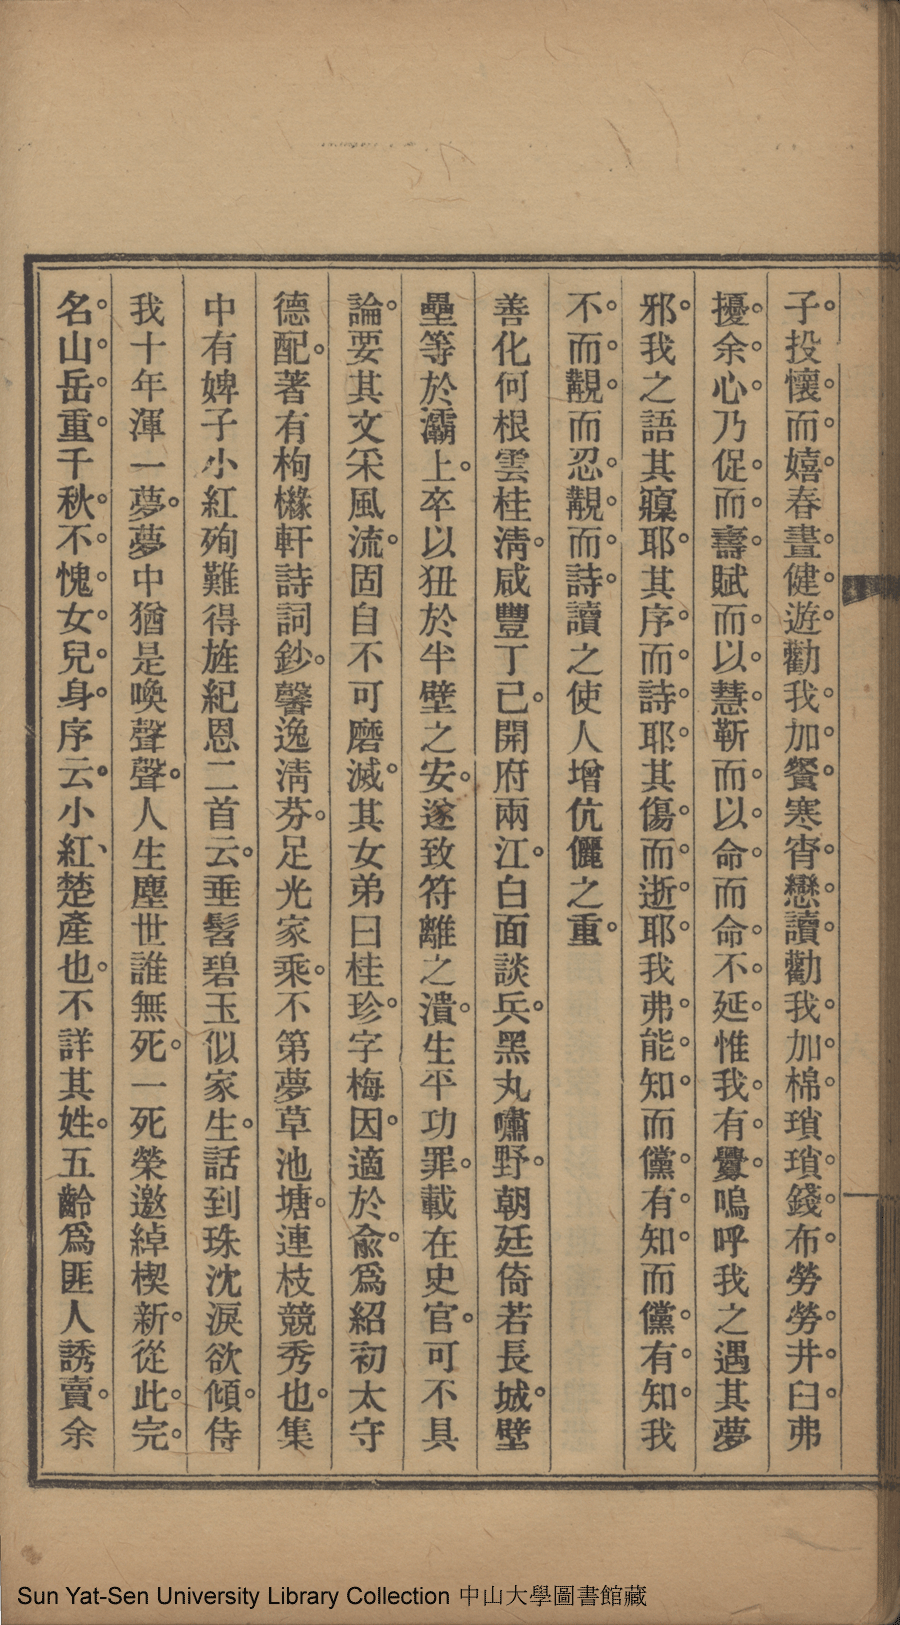 子投懷而嬉春晝健遊勸我加餐寒宵戀讀勸我加棉瑣瑣錢布勞勞井臼弗
擾余心乃促而壽賦而以慧靳而以命而命不延惟我有釁嗚呼我之遇其夢
邪我之語其寱耶其序而詩耶其傷而逝耶我弗能知而儻有知而儻有知我
不而覯而忍覯而詩讀之使人增伉儷之重
善化何根雲桂淸咸豐丁己開府兩江白面談兵黑丸嘯野朝廷倚若長城壁
壘等於灞上卒以狃於半壁之安遂致符離之潰生平功罪載在史官可不具
論要其文采風流固自不可磨滅其女弟曰桂珍字梅因適於俞爲紹初太守
德配著有枸櫞軒詩詞鈔馨逸淸芬足光家乘不第夢草池塘連枝競秀也集
中有婢子小紅殉難得旌紀恩二首云垂髫碧玉似家生話到珠沈淚欲傾侍
我十年渾一夢夢中猶是喚聲聲人生塵世誰無死一死榮邀綽楔新從此完
名山岳重千秋不愧女兒身序云小紅楚產也不詳其姓五齡爲匪人誘賣余
Sun Yat-Sen University Library Collection 中山大學圖書館藏